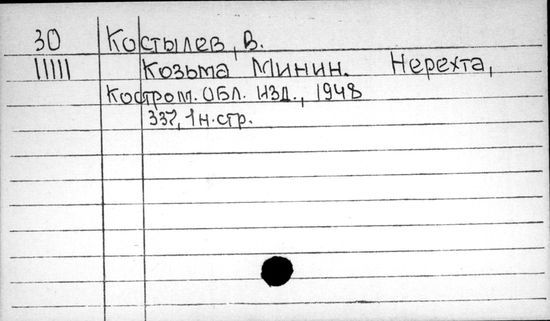 30 Костылев, В.
IIIII Козьма Минин. Нерехта,
Костром. обл. изд., 1948
337, 1 н. стр.